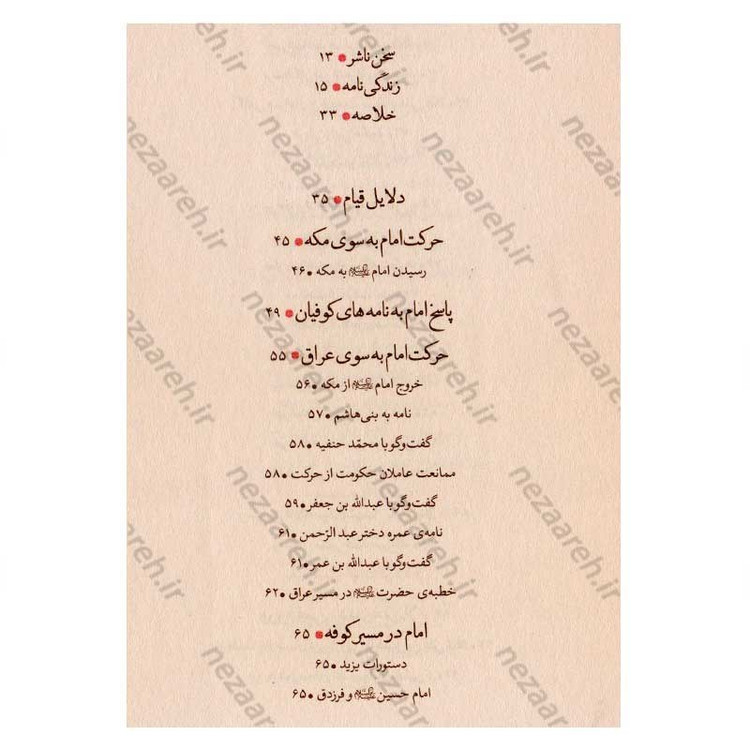 سخن ناشر • ۱۳
زندگی نامه • ۱۵
خلاصه • ۳۳
دلایل قیام • ۳۵
حرکت امام به سوی مکه • ۴۵
رسیدن امام علیه‌السلام به مکه • ۴۶
پاسخ امام به نامه های کوفیان • ۴۹
حرکت امام به سوی عراق • ۵۵
خروج امام علیه‌السلام از مکه • ۵۶
نامه به بنی هاشم • ۵۷
گفت‌وگو با محمّد حنفیه • ۵۸
ممانعت عاملان حکومت از حرکت • ۵۸
گفت‌وگو با عبدالله بن جعفر • ۵۹
نامه‌ی عمره دختر عبد الرّحمن • ۶۱
گفت‌وگو با عبدالله بن عمر • ۶۱
خطبه‌ی حضرت علیه‌السلام در مسیر عراق • ۶۲
امام در مسیر کوفه • ۶۵
دستورات یزید • ۶۵
امام حسین علیه‌السلام و فرزدق • ۶۵
nezaareh.ir